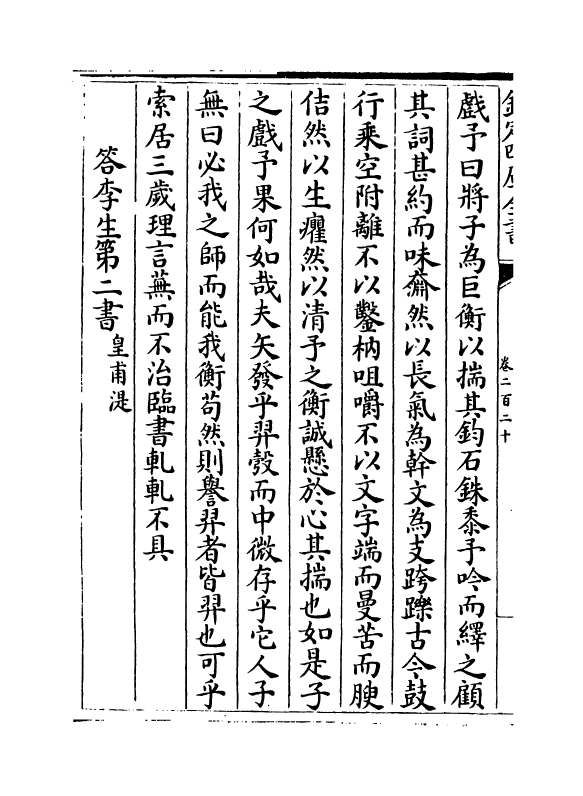 欽定四庫全書
卷二百二十
戲予曰將子為巨衡以揣其鈞石銖黍予吟而繹之顧
其詞甚約而味齌然以長氣為幹文為支跨躒古今鼓
行乘空附離不以鑿枘咀嚼不以文字端而曼苦而腴
佶然以生癯然以清予之衡誠懸於心其揣也如是子
之戲予果何如哉夫矢發乎羿彀而中微存乎它人子
無曰必我之師而能我衡苟然則譽羿者皆羿也可乎
索居三歲理言蕪而不治臨書軋軋不具
答李生第二書皇甫湜